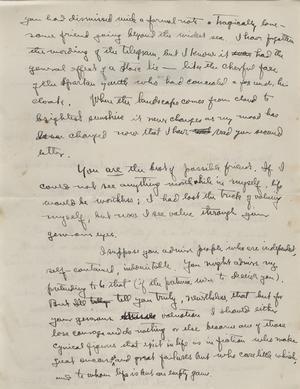 you had dismissed with a formal note. A tragically lone-
some friend going beyond the wicket see. I have forgotten
the wording of the telegram, but I know it had the
general effect of a like the cheerful face
of the Spartan youth who had concealed a fox under his
cloak. When the landscape comes from cloud to
brightest sunshine it never changes as my mood has
changed now that I have read your second
letter.
You are the best of possible friends. If I
could not see anything worth while in myself, life
would be worthless; I had lost the trick of valuing
myself, but now I see value through your
generous eyes.
I suppose you admire people who are independent,
self contained, indomitable. You might admire my
pretending to be that (if the pretense were to deceive you).
But tell you truly, nevertheless that but for
your generous valuation I should either
lose courage and do nothing or else become one of those
cynical figures that exist in life as in fiction who make
great successes and great failures but who care little which
and to whom life is but an empty game.